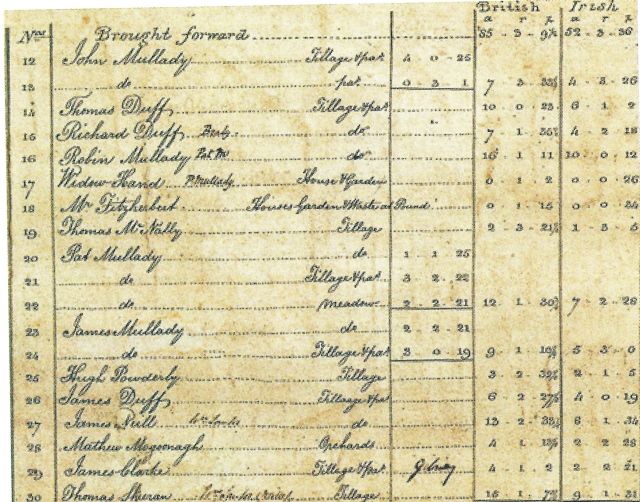 British Irish
a r p a r p
Nos Brought forward 85 - 3 - 9½ 52 - 3 - 36
12 John Mullady Tillage & pas. 4 0 25
13 do pas. 0 3 1 7 3 33½ 4 - 3 - 26
14 Thomas Duff Tillage & pas. 10 0 23 6 1 2
15 Richard Duff do 7 1 35½ 4 - 2 - 18
16 Robin Mullady Pat M do 16 1 11 10 0 12
17 Widow Hand P. Mullady House & Garden 0 1 2 0 0 26
18 Mr Fitzherbert Houses Garden & Waste at Pound 0 1 15 0 0 34
19 Thomas Mc Nally Tillage 2 - 3 - 21½ 1 - 3 - 5
20 Pat Mullady do 1 1 25
21 do Tillage & pas. 3 2 22
22 do Meadow 2 2 21 12 1 30½ 7 - 2 - 28
23 James Mullady do 2 2 21
24 do Tillage & pas. 3 0 19 9 1 10½ 5 3 0
25 Hugh Powderly Tillage 3 - 2 - 32½ 2 1 5
26 James Duff Tillage & pas 6 2 27½ 4 0 19
27 James Null do 13 - 2 - 33½ 8 1 34
28 Mathew Mogoonagh Orchards 4 1 13½ 2 2 28
29 James Clarke Tillage & pas. 4 1 2 2 2 21
30 Thomas Sheran Tillage 15 1 7½ 9 1